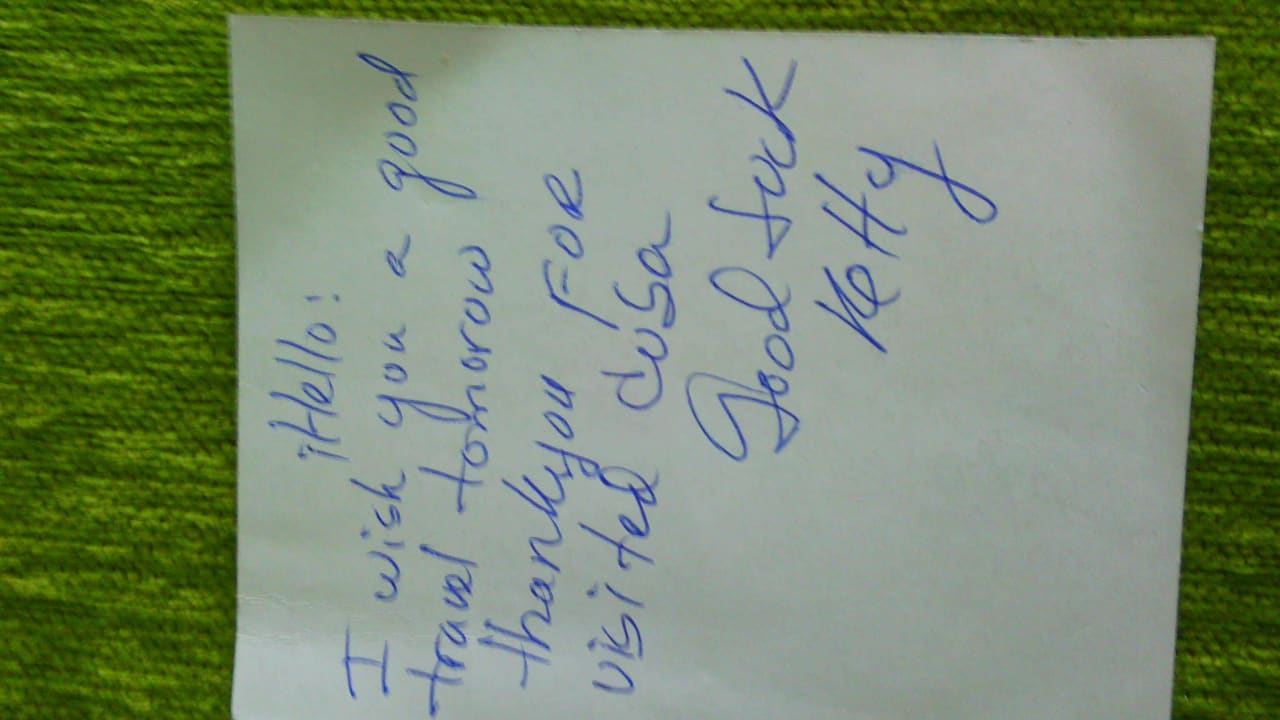 ¡Hello!
I wish you a good
travel tomorow
thankyou FOR
visited
Good luck
Ketty